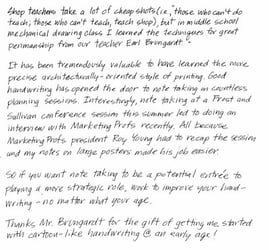 Shop teachers take a lot of cheap shots (i.e., those who can't do
teach; those who can't teach, teach shop), but in middle school
mechanical drawing class I learned the techniques for great
penmanship from our teacher Earl Brungardt.
It has been tremendously valuable to have learned the more
precise architecturally-oriented style of printing. Good
handwriting has opened the door to note taking in countless
planning sessions. Interestingly, note taking at a Frost and
Sullivan conference session this summer led to doing an
interview with Marketing Profs recently. All because
Marketing Profs president Roy Young had to recap the session
and my notes on large posters made his job easier.
So if you want note taking to be a potential entrée to
playing a more strategic role, work to improve your hand-
writing - no matter what your age.
Thanks Mr. Brungardt for the gift of getting me started
with cartoon-like handwriting @ an early age!